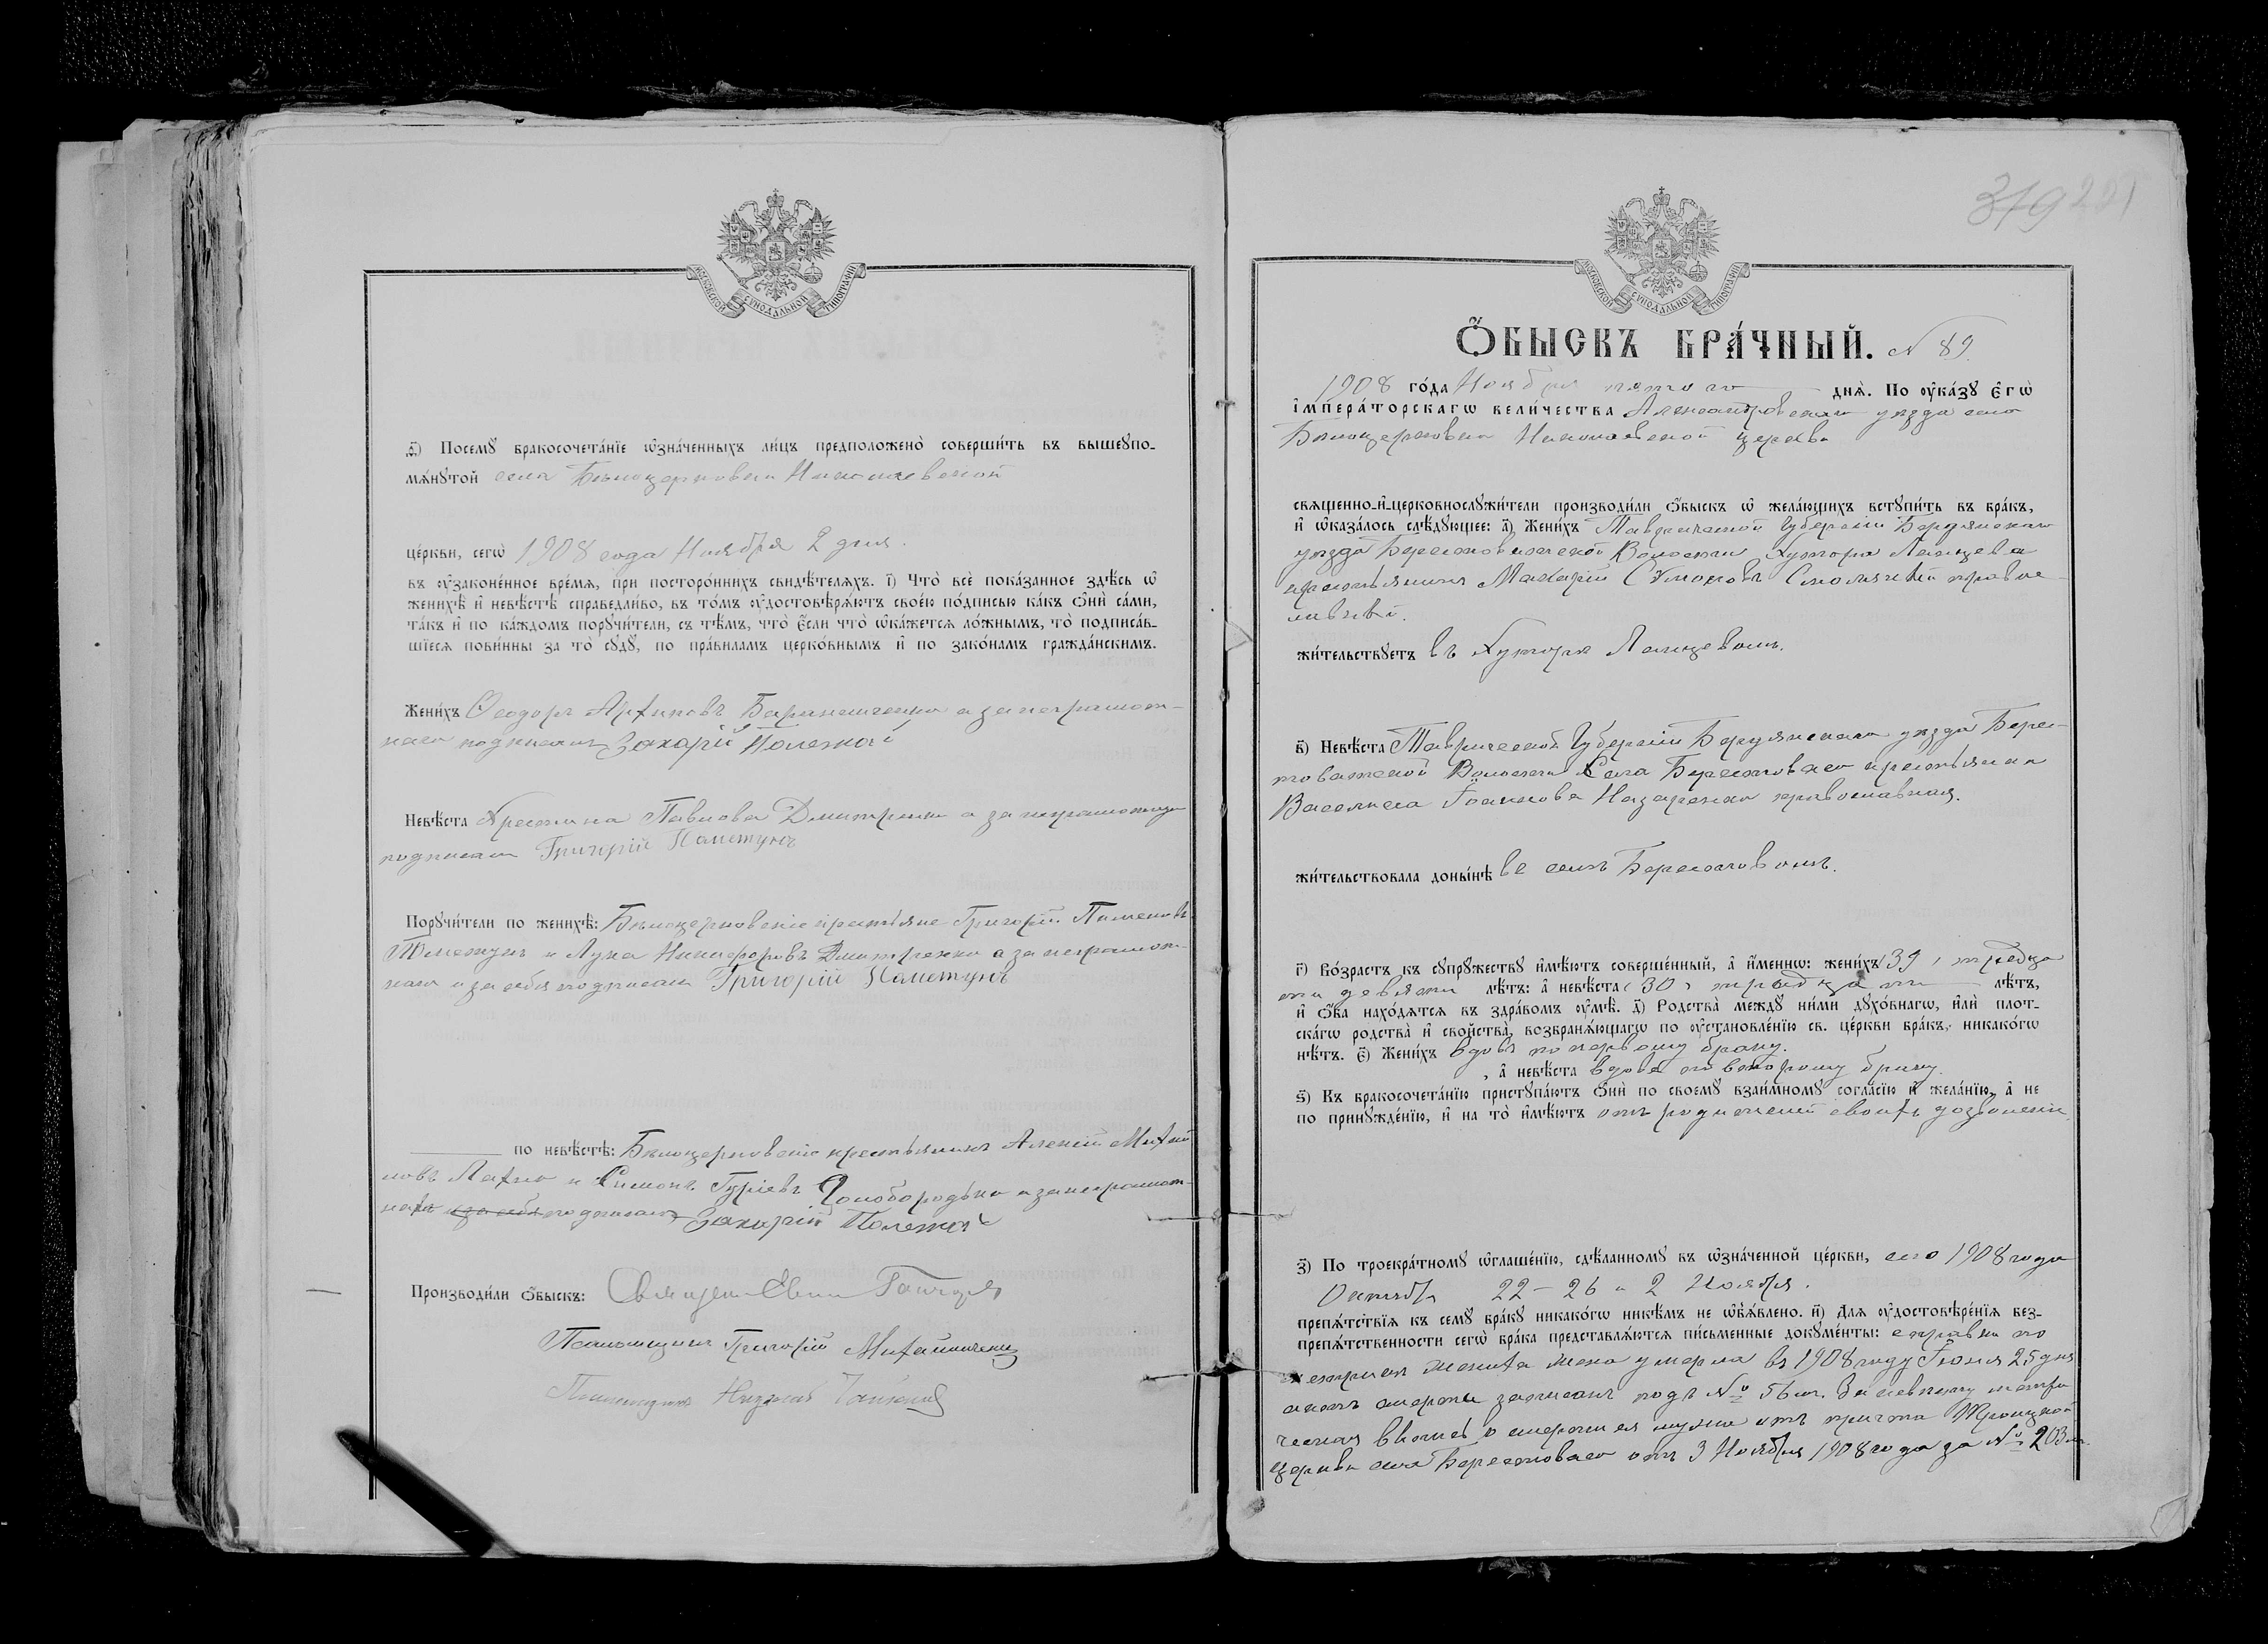 МОСКОВСКОЙ СѴНОДАЛЬНОЙ ТИПОГРАФІИ
Посемꙋ бракосочета́нїе ѡ҆зна́ченныхъ ли́цъ предположено̀ соверши́ть въ вышеꙋпо-
мѧ́нꙋтой села Бѣлоцерковки Николаевской
це́ркви, сегѡ̀ 1908 года Ноября 2 дня.
въ ᲂу҆зако́ненное вре́мѧ, при посторо́ннихъ свидѣ́телѧхъ. і҃) Что̀ всѐ пока́занное здѣ́сь ѡ҆
женихѣ̀ и҆ невѣ́стѣ справедли́во, въ то́мъ ᲂу҆достовѣрѧ́ютъ свое́ю по́дписью ка́къ ѻ҆нѝ са́ми,
та́къ и҆ по ка́ждомъ порꙋчи́тели, съ тѣ́мъ, что̀ є҆́сли что̀ ѡ҆ка́жетсѧ ло́жнымъ, то̀ подписа́в-
шїесѧ пови́нны за то̀ сꙋдꙋ̀, по пра́виламъ церко́внымъ и҆ по зако́намъ гражда́нскимъ.
Жени́хъ Ѳеодоръ Архиповъ а за неграмот-
наго подписалъ Захарій Полежай
Невѣ́ста Христина Павлова Дмитренко а за неграмотную
подписалъ Григорій Пометунъ
Порꙋчи́тели по женихѣ̀: Бѣлоцерковскіе крестьяне Григорій Пименовъ
Пометунъ и Лука Никифоровъ Дмитренко а за неграмот-
наго и за себя подписалъ Григорій Пометунъ
по невѣ́стѣ: Бѣлоцерковскіе крестьянинъ Алексій Михай
ловъ Лахно и Симонъ Гуріевъ Голобородько а за неграмот-
ныхъ и за себя подписалъ Захарій Полежай
Производи́ли ѻ҆́быскъ: Священникъ
Григорій Михайличенко
379 221
МОСКОВСКОЙ СѴНОДАЛЬНОЙ ТИПОГРАФІИ
Ѻ҆́БЫСКЪ БРА́ЧНЫЙ. N 89.
1908 го́да Ноября пятого днѧ̀. По ᲂу҆ка́зꙋ є҆гѡ̀
і҆мпера́торскагѡ вели́чества Александровскаго уѣзда села
Бѣлоцерковки Николаевской церкви
свѧще́нно-и҆-церковнослꙋжи́тели производи́ли ѻ҆́быскъ ѡ҆ жела́ющихъ встꙋпи́ть въ бра́къ,
и҆ ѡ҆каза́лось слѣ́дꙋющее: а҃) Жени́хъ Таврической Губерніи Бердянскаго
уѣзда Волости хутора Ланцева
крестьянинъ Макарій Сѵмоновъ православ-
ный.
жи́тельствꙋетъ въ Хуторѣ Ланцевомъ.
в҃) Невѣ́ста Таврической Губерніи Бердянскаго уѣзда Берес-
товатской Волости Села Берестоваго крестьянка
Василиса Іоаннова Назаренко православная.
жи́тельствовала доны́нѣ въ селѣ Берестовомъ.
г҃) Во́зрастъ къ сꙋпрꙋ́жествꙋ и҆мѣ́ютъ соверше́нный, а҆ и҆́меннѡ: жени́хъ 39, тридца
ти девяти лѣ́тъ: а҆ невѣ́ста (30) тридцати лѣ́тъ,
и҆ ѻ҆́ба нахо́дѧтсѧ въ здра́вомъ ᲂу҆мѣ̀. д҃) Родства̀ междꙋ ни́ми дꙋхо́внагѡ, и҆лѝ плот-
ска́гѡ родства̀ и҆ свойства̀, возбранѧ́ющагѡ по ᲂу҆становле́нїю св. це́ркви бра́къ, никако́гѡ
нѣ́тъ. є҃) Жени́хъ вдовъ по первому браку.
, а҆ невѣ́ста вдова по второму браку.
ѕ҃) Къ бракосочета́нїю пристꙋпа́ютъ ѻ҆нѝ по своемꙋ̀ взаи́мномꙋ согла́сїю и҆ жела́нїю, а҆ не
по принꙋжде́нїю, и҆ на то̀ и҆мѣ́ютъ отъ родителей своихъ дозволеніе
з҃) По троекра́тномꙋ ѡ҆глаше́нїю, сдѣ́ланномꙋ въ ѡ҆зна́ченной це́ркви, сего 1908 года
Октября 22 – 26 и 2 Ноября.
препѧ́тствїѧ къ семꙋ̀ бра́кꙋ никако́гѡ никѣ́мъ не ѡ҆б̾ѧ́влено. и҃) Длѧ ᲂу҆достовѣре́нїѧ без-
препѧ́тственности сегѡ̀ бра́ка представлѧ́ютсѧ пи́сьменные докꙋме́нты: справки по
метрикѣ жениха жена умерла въ 1908 году Іюня 25 дня
актъ смерти записанъ подъ № 56 м. За невѣсту метри
ческая выпись о смерти ея мужа отъ причта Троицкой
церкви села Берестоваго отъ 3 Ноября 1908 года за № 203 м.